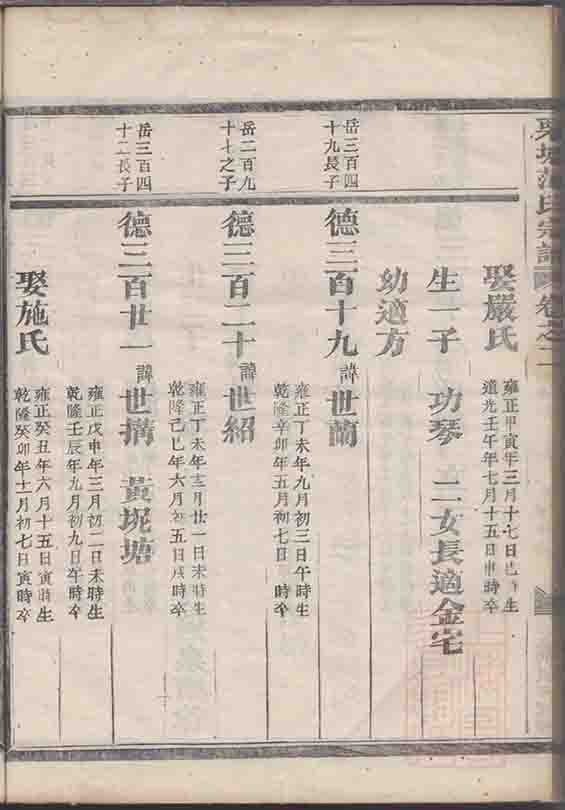 宗譜 卷之二
娶嚴氏
雍正甲寅年三月十七日巳時生
道光壬午年七月十五日申時卒
生一子 功琴 二女長適金宅
幼適方
岳三百四
十九長子
德三百十九 諱世蘭
雍正丁未年九月初三日午時生
乾隆辛卯年五月初七日 時卒
岳二百九
十七之子
德三百二十 諱世紹
雍正丁未年 月廿一日未時生
乾隆己巳年六月初五日戌時卒
岳三百四
十二長子
德三百廿一 諱世 黃坭塘
雍正戊申年三月初二日未時生
乾隆壬辰年九月初九日午時卒
娶施氏
雍正癸丑年六月十五日寅時生
乾隆癸卯年十一月初七日寅時卒